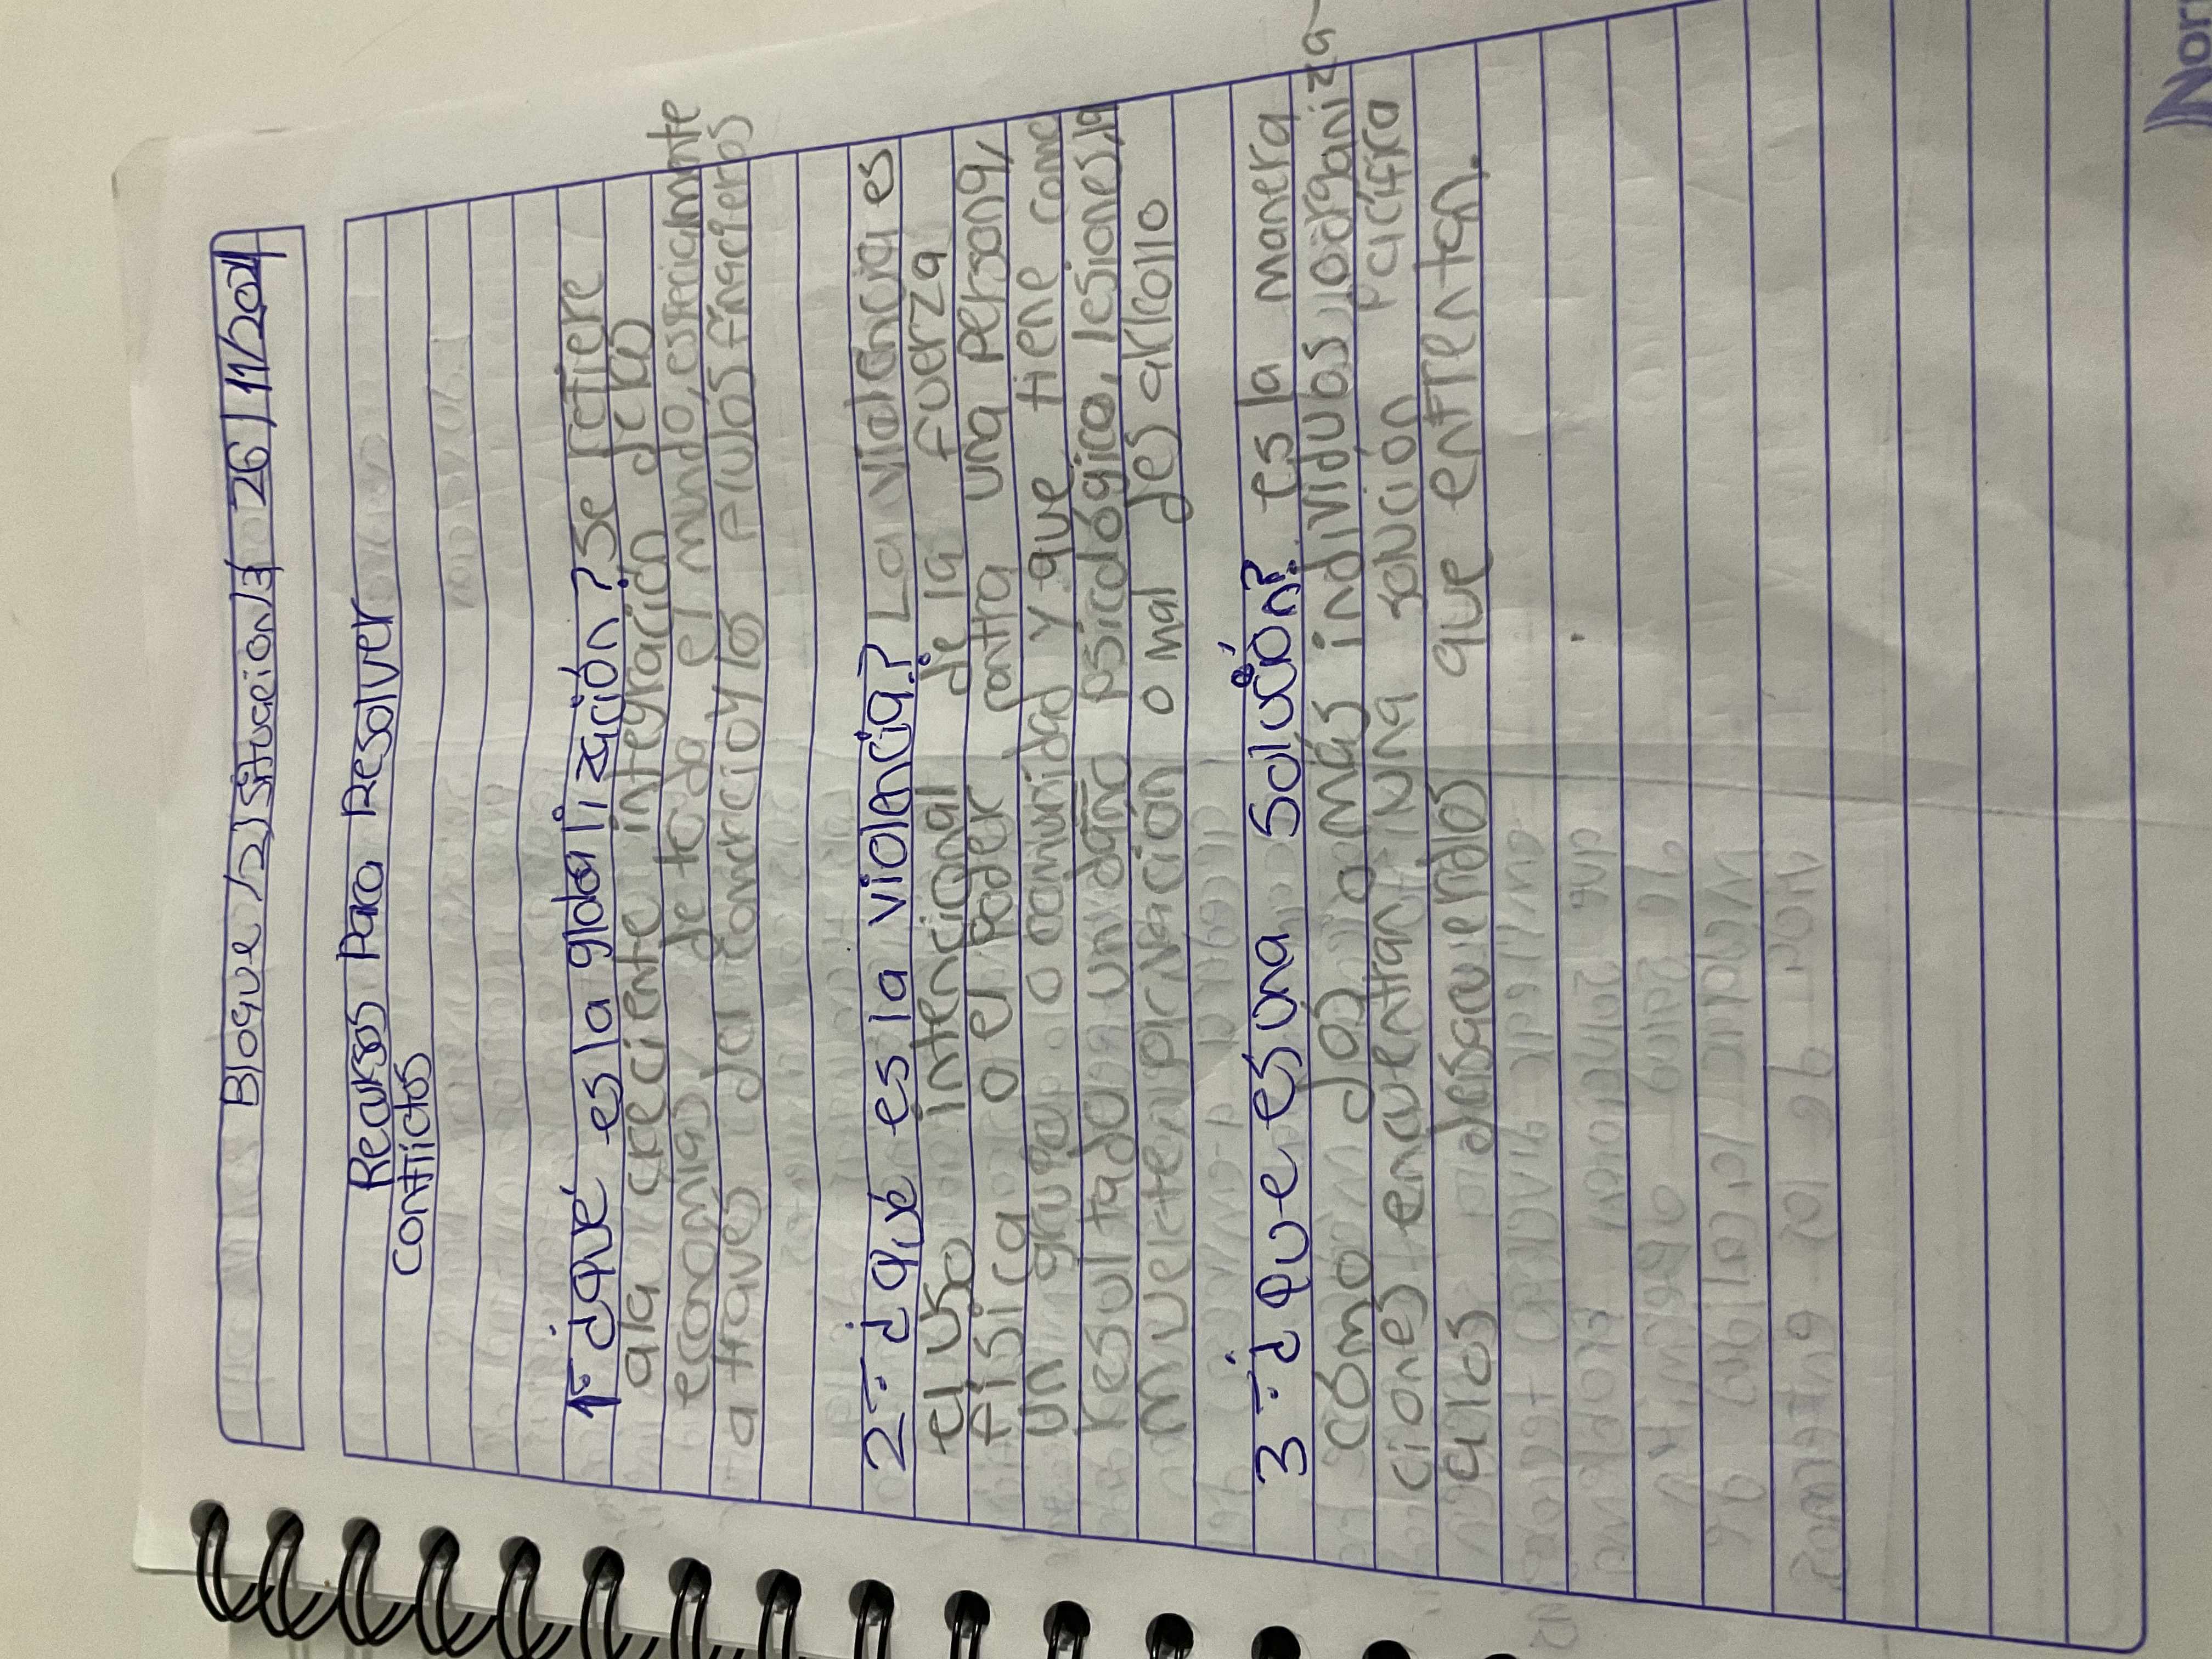 Bloque/2/Situacion/3 26/11/2024
Recursos Para Resolver
conflictos
1= ¿qué es la globalización? Se refiere
a la creciente integración de las
economías de todo el mundo, especialmente
a través del comercio y los flulos financieros
2= ¿qué es la violencia? La violencia es
el uso intencional de la fuerza
física o el poder contra una persona,
un grupo o comunidad y que tiene como
resultado un daño psicológico, lesiones, la
muerte, privación o mal desarrollo
3= ¿que es una solución? es la manera
cómo dos o más individuos u organiza
ciones encuentran una solución pacífica
a los desacuerdos que enfrentan.
Nor